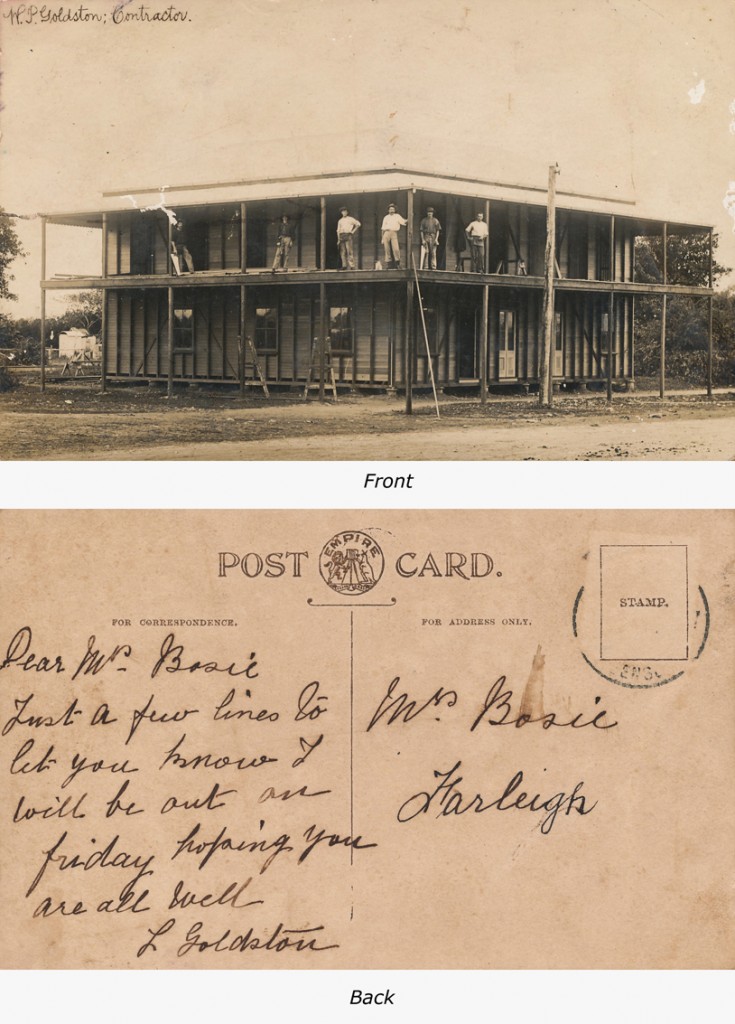 W. P. Goldston; Contractor.
Front
POST EMPIRE CARD.
FOR CORRESPONDENCE.
FOR ADDRESS ONLY.
STAMP.
Dear Mrs. Bosie
Just a few lines to
let you know I
will be out on
friday hoping you
are all well
L Goldston
Mrs. Bosie
Farleigh
Back